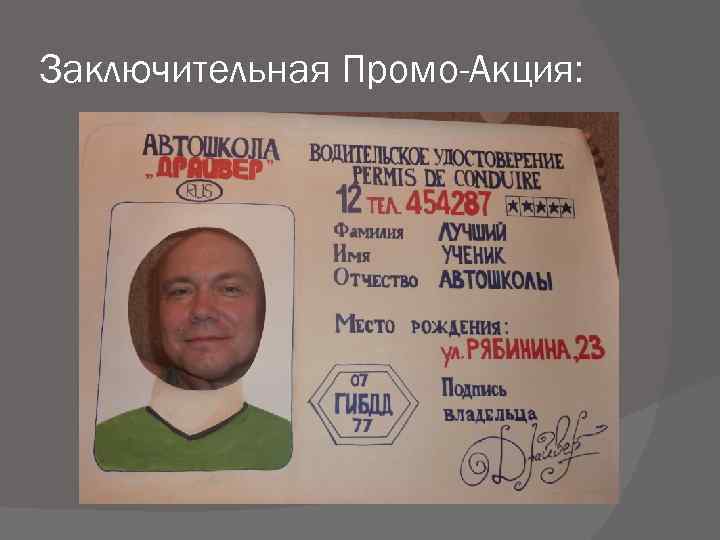 Заключительная Промо-Акция:
АВТОШКОЛА
„ДРАЙВЕР"
RUS
ВОДИТЕЛЬСКОЕ УДОСТОВЕРЕНИЕ
PERMIS DE CONDUIRE
12 ТЕЛ. 454287
Фамилия ЛУЧШИЙ
Имя УЧЕНИК
Отчество АВТОШКОЛЫ
Место рождения:
ул. РЯБИНИНА, 23
07
ГИБДД
77
Подпись
владельца
Драйвер